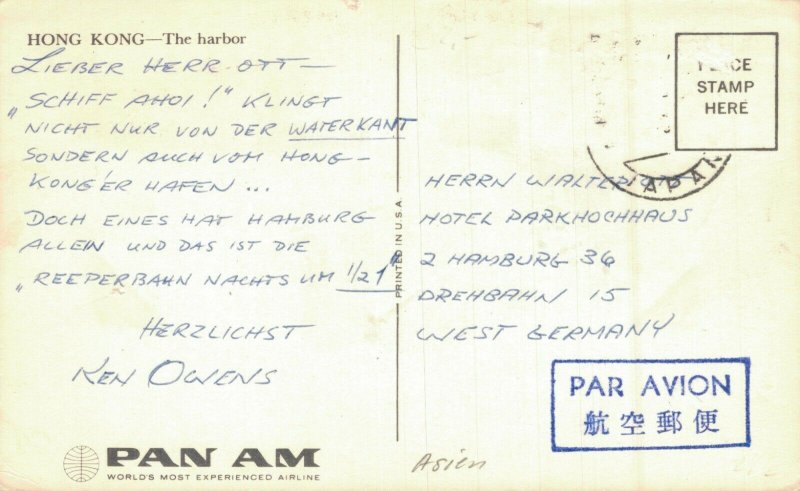 HONG KONG—The harbor
LIEBER HERR OTT —
„SCHIFF AHOI!" KLINGT
NICHT NUR VON DER WATERKANT
SONDERN AUCH VOM HONG-
KONG'ER HAFEN ...
DOCH EINES HAT HAMBURG
ALLEIN UND DAS IST DIE
„REEPERBAHN NACHTS UM 1/2 1"
HERZLICHST
KEN OWENS
PAN AM
WORLD'S MOST EXPERIENCED AIRLINE
PRINTED IN U.S.A.
PLACE
STAMP
HERE
JAPAN
HERRN WALTER
HOTEL PARKHOCHHAUS
2 HAMBURG 36
DREHBAHN 15
WEST GERMANY
PAR AVION
航空郵便
Asien